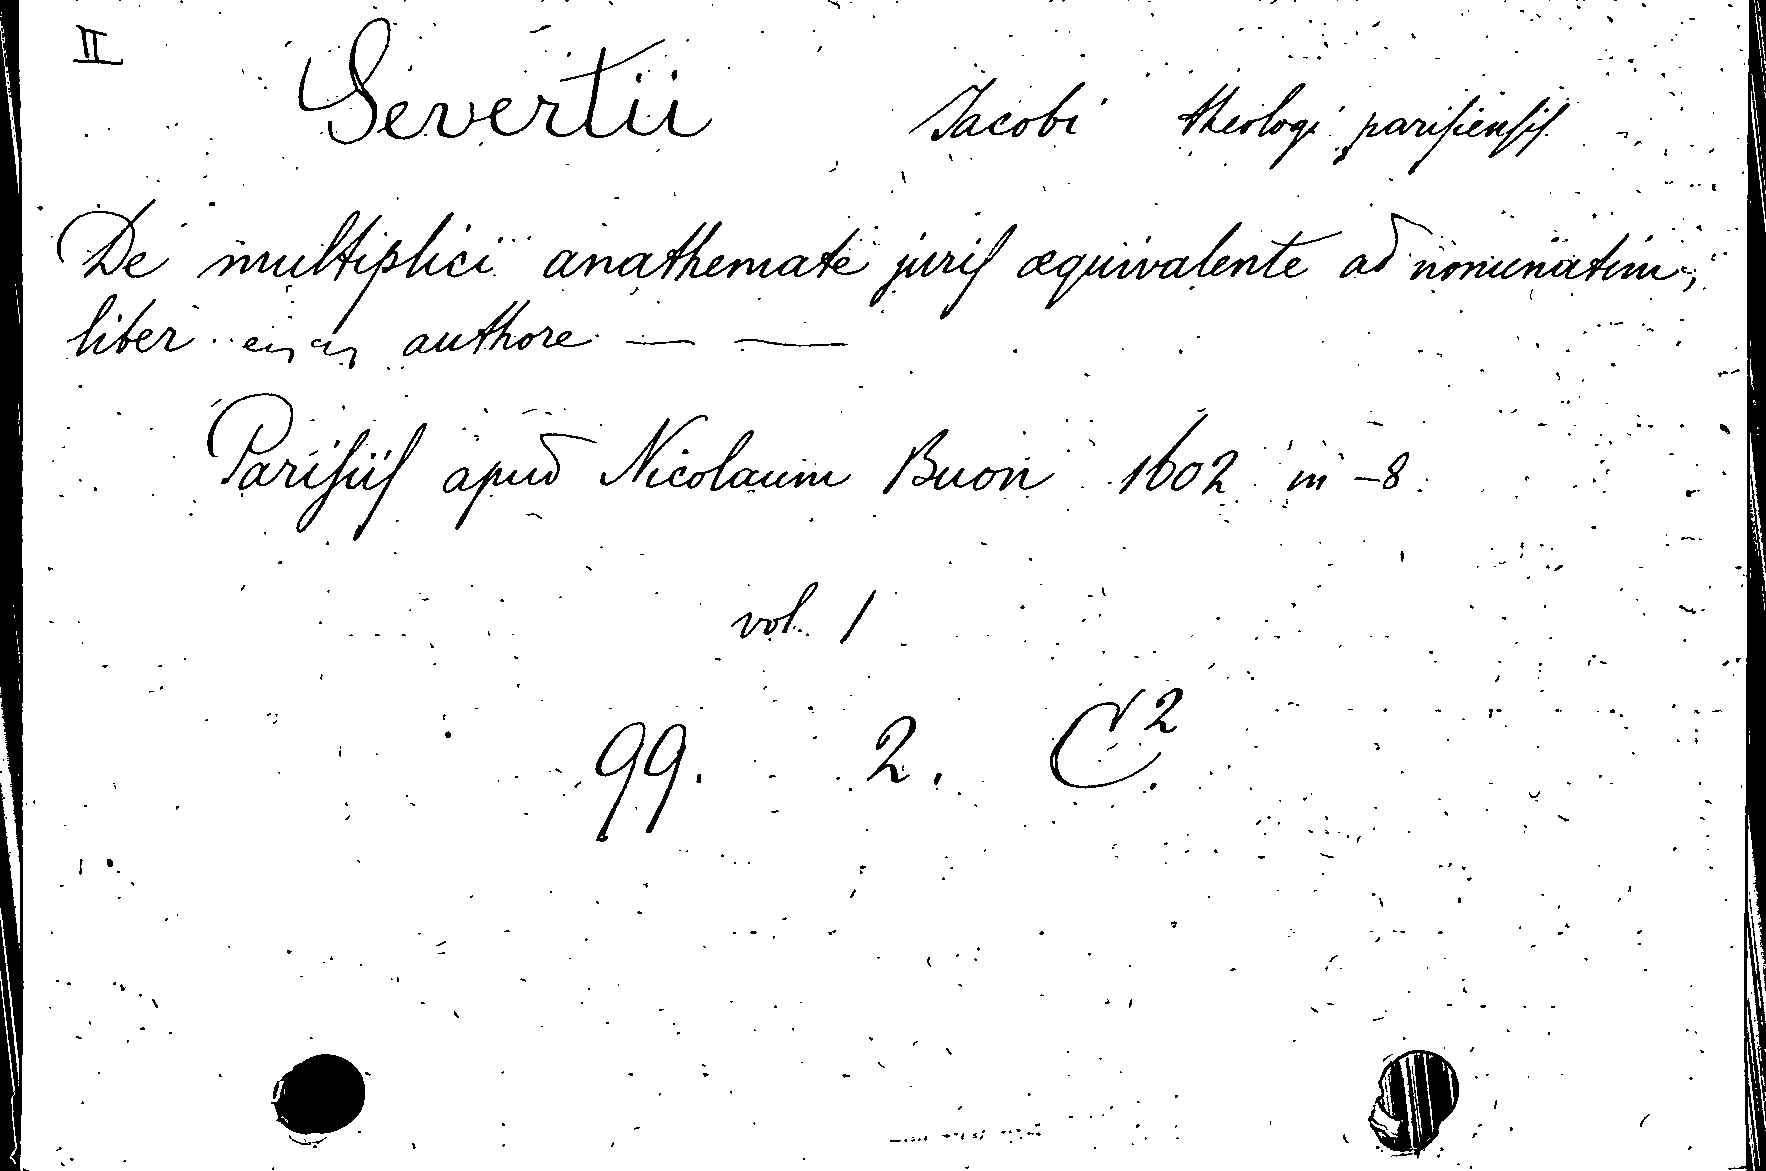 II
Severtii Jacobi theologi parisiensis
De multiplici anathemate juris æquivalente ad nominatim,
liber authore — —
Parisiis apud Nicolaum Buon 1602 in-8
vol. 1
99. 2. C².